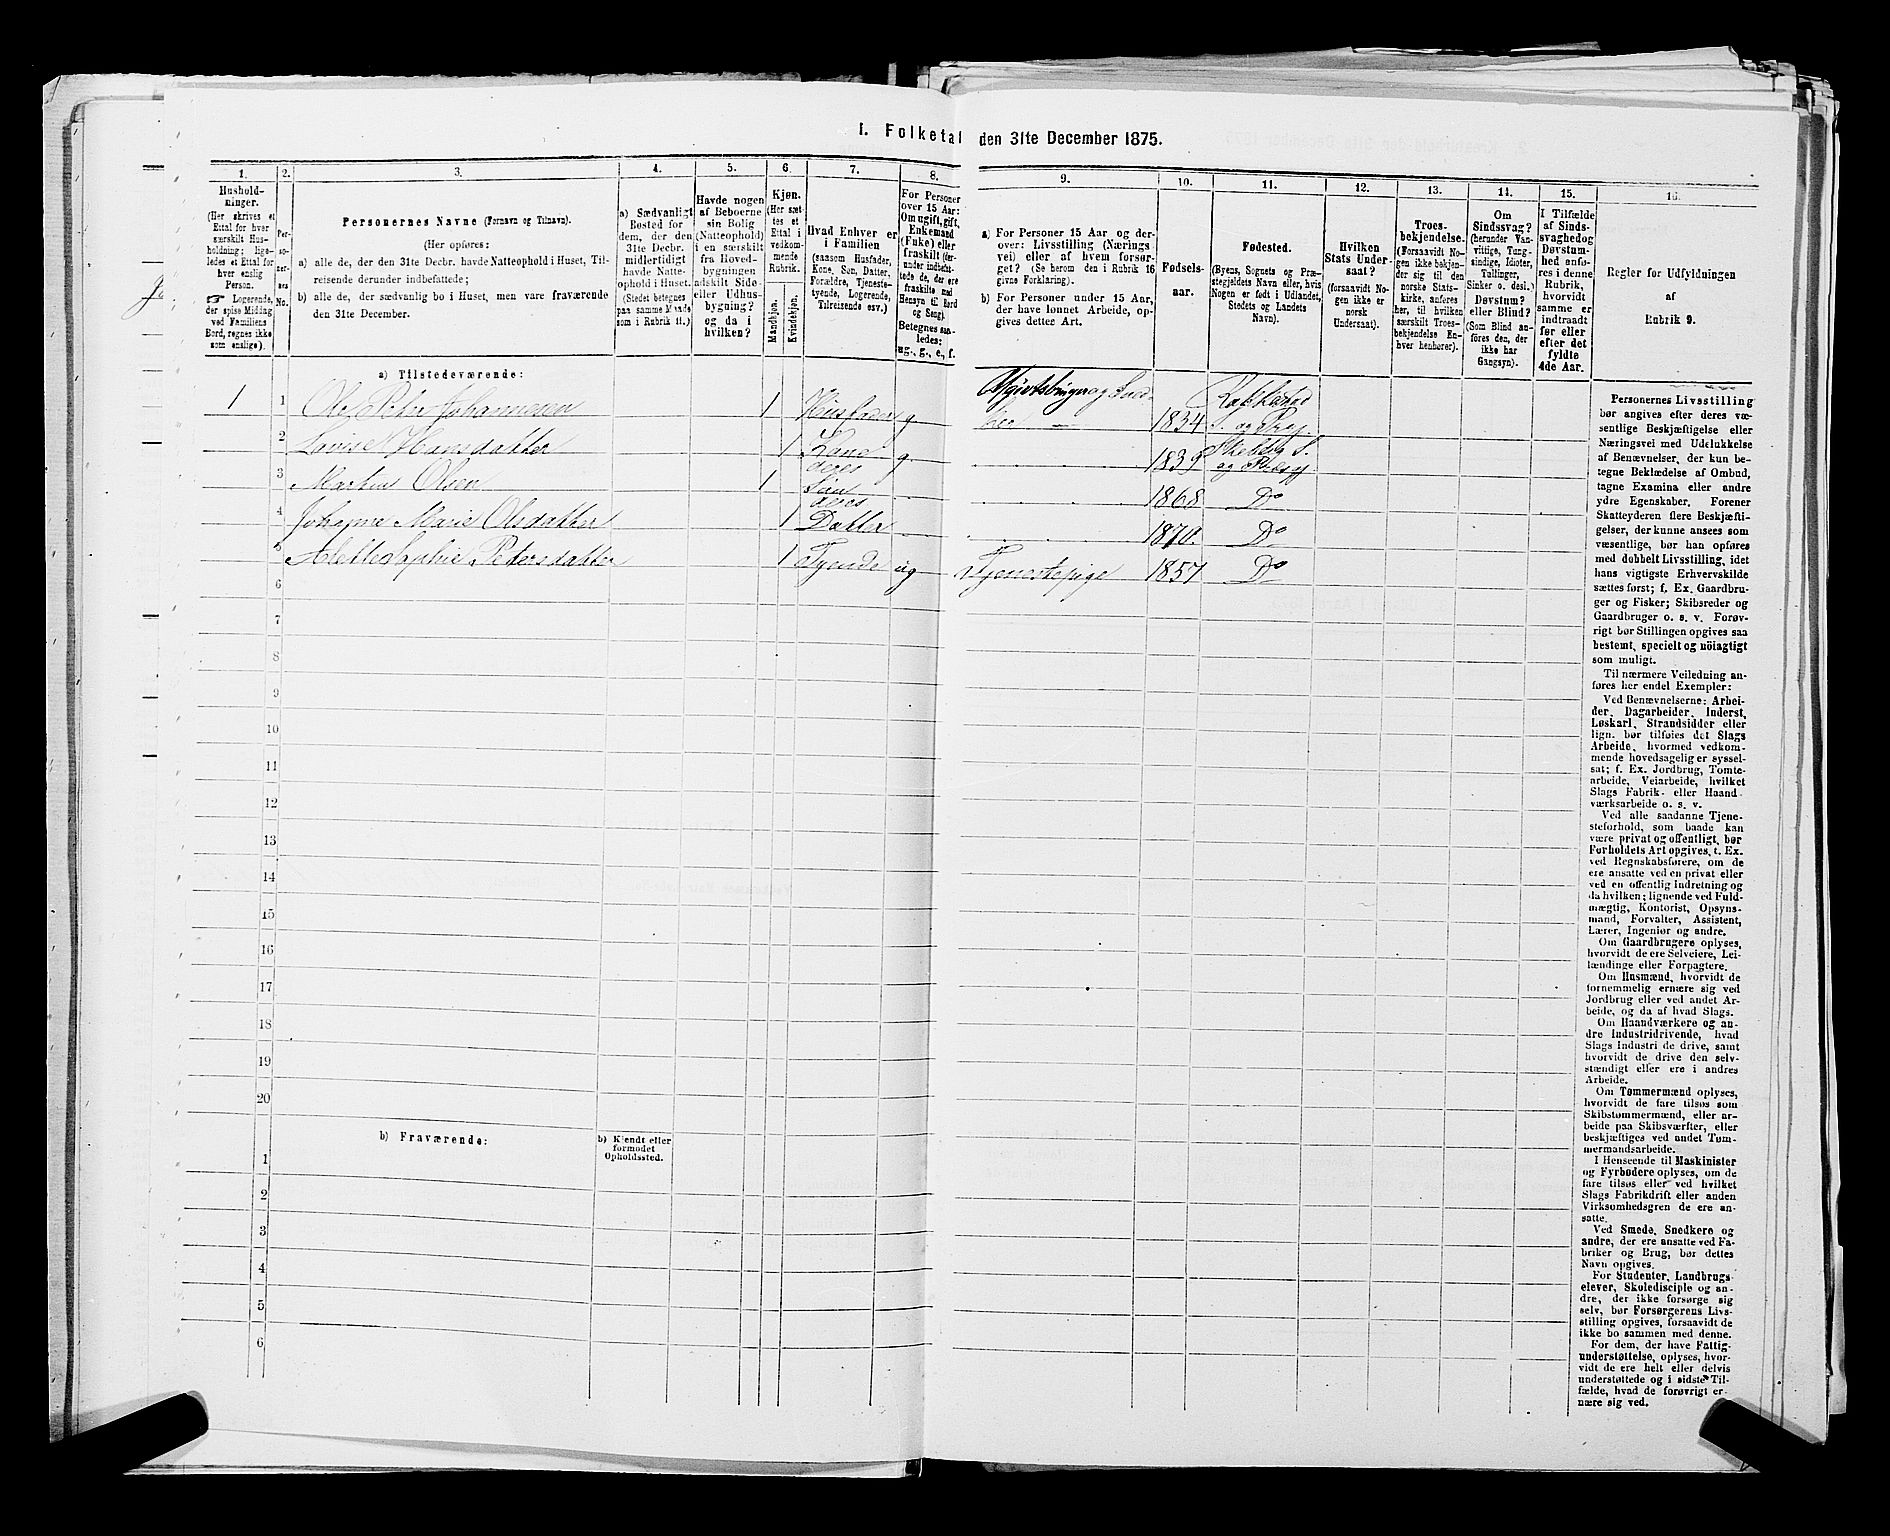 I. Folketal den 31te December 1875.
1.
Hushold-
ninger.
(Her skrives et
Ettal for hver
særskilt Hus-
holdning; lige-
ledes et Ettal for
hver enslig
Person.
☞ Logerende,
der spise Middag
ved Familiens
Bord, regnes ikke
som enslige).
2.
Per-
so-
ner-
nes
No.
3.
Personernes Navne (Fornavn og Tilnavn).
(Her opføres:
a) alle de, der den 31te Decbr. havde Natteophold i Huset, Til-
reisende derunder indbefattede;
b) alle de, der sædvanlig bo i Huset, men vare fraværende
den 31te December.
4.
a) Sædvanligt
Bosted for
dem, der den
31te Decbr.
midlertidigt
havde Natte-
ophold i Huset.
(Stedet betegnes
paa samme Maade
som i Rubrik 11.)
5.
Havde nogen
af Beboerne
sin Bolig
(Natteophold)
i en særskilt
fra Hoved-
bygningen
adskilt Side-
eller Udhus-
bygning?
og da i
hvilken?
6.
Kjøn.
(Her sæt-
tes et
Ettal i
vedkom-
mende
Rubrik.
Mandkjøn.
Kvindekjøn.
7.
Hvad Enhver er
i Familien
(saasom Husfader,
Kone, Søn, Datter,
Forældre, Tjeneste-
tyende, Logerende,
Tilreisende osv.)
8.
For Personer
over 15 Aar:
Om ugift, gift,
Enkemand
(Enke) eller
fraskilt (her-
under indbefat-
tede de, der ere
fraskilte med
Hensyn til Bord
og Seng).
Betegnes saa-
ledes:
ug., g., e., f.
9.
a) For Personer 15 Aar og der-
over: Livsstilling (Nærings-
vei) eller af hvem forsør-
get? (Se herom den i Rubrik 16
givne Forklaring).
b) For Personer under 15 Aar,
der have lønnet Arbeide, op-
gives dettes Art.
10.
Fødsels-
aar.
11.
Fødested.
(Byens, Sognets og Præ-
stegjeldets Navn eller, hvis
Nogen er født i Udlandet,
Stedets og Landets
Navn).
12.
Hvilken
Stats Under-
saat?
(forsaavidt No-
gen ikke er
norsk
Undersaat).
13.
Troes-
bekjendelse.
(Forsaavidt No-
gen ikke bekjen-
der sig til den
norske Stats-
kirke, anføres
her, til hvilken
særskilt Troes-
bekjendelse En-
hver henhører).
14.
Om
Sindssvag?
(herunder Van-
vittige, Tung-
sindige, Idioter,
Tullinger,
Sinker o. desl.)
Døvstum?
eller Blind?
(Som Blind an-
føres den, der
ikke har
Gangsyn).
15.
I Tilfælde
af Sinds-
svaghed og
Døvstum-
hed anfø-
res i denne
Rubrik,
hvorvidt
samme er
indtraadt
før eller
efter det
fyldte
4de Aar.
16.
Regler for Udfyldningen
af
Rubrik 9.
a) Tilstedeværende:
1 1 Ole Peter Johannesen 1 Husfader g 1834 Rakkestad S. og Præj
2 Lovise Hansdatter 1 Kone g 1839
deres
3 Martius Olsen 1 Søn 1868 Do
deres
4 Johanne Marie Olsdatter 1 Datter 1870. Do
5 Petersdatter 1 Tyende ug Tjenestepige 1857 Do
6
7
8
9
10
11
12
13
14
15
16
17
18
19
20
b) Fraværende:
b) Kjendt eller
formodet
Opholdssted.
1
2
3
4
5
6
Personernes Livsstilling
bør angives efter deres væ-
sentlige Beskjæftigelse eller
Næringsvei med Udelukkelse
af Benævnelser, der kun be-
tegne Beklædelse af Ombud,
tagne Examina eller andre
ydre Egenskaber. Forener
Skatteyderen flere Beskjæfti-
gelser, der kunne ansees som
væsentlige, bør han opføres
med dobbelt Livsstilling, idet
hans vigtigste Erhvervskilde
sættes først; f. Ex. Gaardbru-
ger og Fisker; Skibsreder og
Gaardbruger o. s. v. Forøv-
rigt bør Stillingen opgives saa
bestemt, specielt og nöiagtigt
som muligt.
Til nærmere Veiledning an-
føres her endel Exempler:
Ved Benævnelserne: Arbei-
der, Dagarbeider, Inderst,
Løskarl, Strandsidder eller
lign. bør tilføies det Slags
Arbeide, hvormed vedkom-
mende hovedsagelig er syssel-
sat; f. Ex. Jordbrug, Tomte-
arbeide, Veiarbeide, hvilket
Slags Fabrik- eller Haand-
værksarbeide o. s. v.
Ved alle saadanne Tjene-
steforhold, som baade kan
være privat og offentligt, bør
Forholdets Art opgives, t. Ex.
ved Regnskabsførere, om de
ere ansatte ved en privat eller
ved en offentlig Indretning og
da hvilken; lignende ved Fuld-
mægtig, Kontorist, Opsyns-
mand, Forvalter, Assistent,
Lærer, Ingeniør og andre.
Om Gaardbrugere oplyses,
hvorvidt de ere Selveiere, Lei-
lændinge eller Forpagtere.
Om Husmænd, hvorvidt de
fornemmelig ernære sig ved
Jordbrug eller ved andet Ar-
beide, og da af hvad Slags.
Om Haandværkere og an-
dre Industridrivende, hvad
Slags Industri de drive, samt
hvorvidt de drive den selv-
stændigt eller ere i andres
Arbeide.
Om Tømmermænd oplyses,
hvorvidt de fare tilsøs som
Skibstømmermænd, eller ar-
beide paa Skibsværfter, eller
beskjæftiges ved andet Tøm-
mermandsarbeide.
I Henseende til Maskinister
og Fyrbødere oplyses, om de
fare tilsøs eller ved hvilket
Slags Fabrikdrift eller anden
Virksomhedsgren de ere an-
satte.
Ved Smede, Snedkere og
andre, der ere ansatte ved Fa-
briker og Brug, bør dettes
Navn opgives.
For Studenter, Landbrugs-
elever, Skoledisciple og an-
dre, der ikke forsørge sig
selv, bør Forsørgerens Livs-
stilling opgives, forsaavidt de
ikke bo sammen med denne.
For dem, der have Fattig-
understøttelse, oplyses, hvor-
vidt de ere helt eller delvis
understøttede og i sidste Til-
fælde, hvad de forøvrigt er-
nære sig ved.